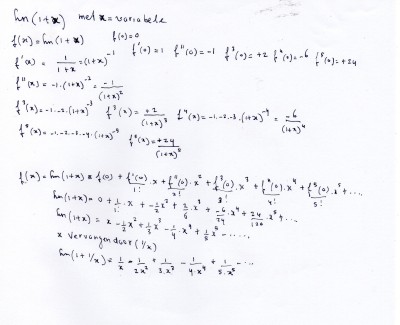 ln(1+x) met x=variabele
f(x)=ln(1+x) f(0)=0
f'(x) = 1/(1+x) =(1+x)^-1 f'(0)=1 f''(0)=-1 f³(0)=+2 f⁴(0)=-6 f⁵(0)=+24
f''(x)=-1.(1+x)^-2=-1/(1+x)²
f³(x)=-1.-2.(1+x)^-3 f³(x)=+2/(1+x)³ f⁴(x)=-1.-2.-3.(1+x)^-4=-6/(1+x)⁴
f⁵(x)=-1.-2.-3.-4.(1+x)^-5 f⁵(x)=+24/(1+x)⁵
f(x)=ln(1+x)=f(0)+f'(0)/1!.x+f''(0)/2!.x²+f³(0)/3!.x³+f⁴(0)/4!.x⁴+f⁵(0)/5!.x⁵+...
ln(1+x)=0+1/1!.x+-1/2x²+2/6.x³-6/24x⁴+24/120x⁵+...
ln(1+x)=x-1/2x²+1/3x³-1/4x⁴+1/5x⁵-.....
x vervangen door (1/x)
ln(1+1/x)=1/x-1/2x²+1/3.x³-1/4.x⁴+1/5.x⁵-....